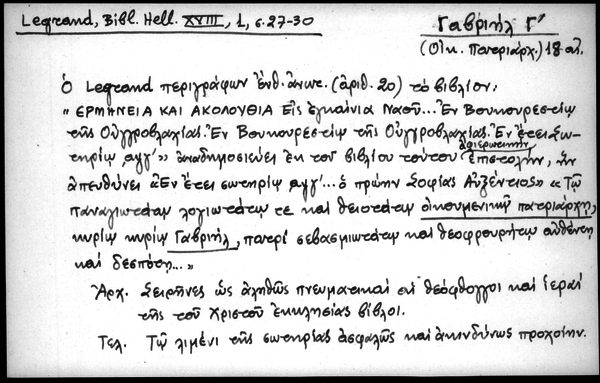 Legrand, Bibl. Hell. XVIII, 1, σ. 27-30
Γαβριήλ Γ'
(Οἰκ. Πατριάρχ.) 18 αἰ.
Ὁ Legrand περιγράφων ἐνθ. ἀνωτ. (ἀριθ. 20) τὸ βιβλίον:
"ΕΡΜΗΝΕΙΑ ΚΑΙ ΑΚΟΛΟΥΘΙΑ Εἰς ἐγκαίνια Ναοῦ... Ἐν Βουκουρεστίῳ
τῆς Οὐγγροβλαχίας. Ἐν Βουκουρεστίῳ τῆς Οὐγγροβλαχίας. Ἐν ἔτει Σω-
τηρίῳ ͵αψγ'" ἀναδημοσιεύει ἐκ τοῦ βιβλίου τούτου ἀφιερωτικὴν ἐπιστολήν, ἣν
ἀπευθύνει "Ἐν ἔτει σωτηρίῳ ͵αψγ'... ὁ πρώην Σοφίας Αὐξέντιος" "Τῷ
παναγιωτάτῳ λογιωτάτῳ τε καὶ θειοτάτῳ οἰκουμενικῷ πατριάρχῃ,
κυρίῳ κυρίῳ Γαβριήλ, πατρὶ σεβασμιωτάτῳ καὶ θεοφρουρήτῳ αὐθέντῃ
καὶ δεσπότῃ..."
Ἀρχ. Σειρῆνες ὡς ἀληθῶς πνευματικαὶ αἱ θεόφθογγοι καὶ ἱεραὶ
τῆς τοῦ Χριστοῦ ἐκκλησίας βίβλοι.
Τελ. Τῷ λιμένι τῆς σωτηρίας ἀσφαλῶς καὶ ἀκινδύνως